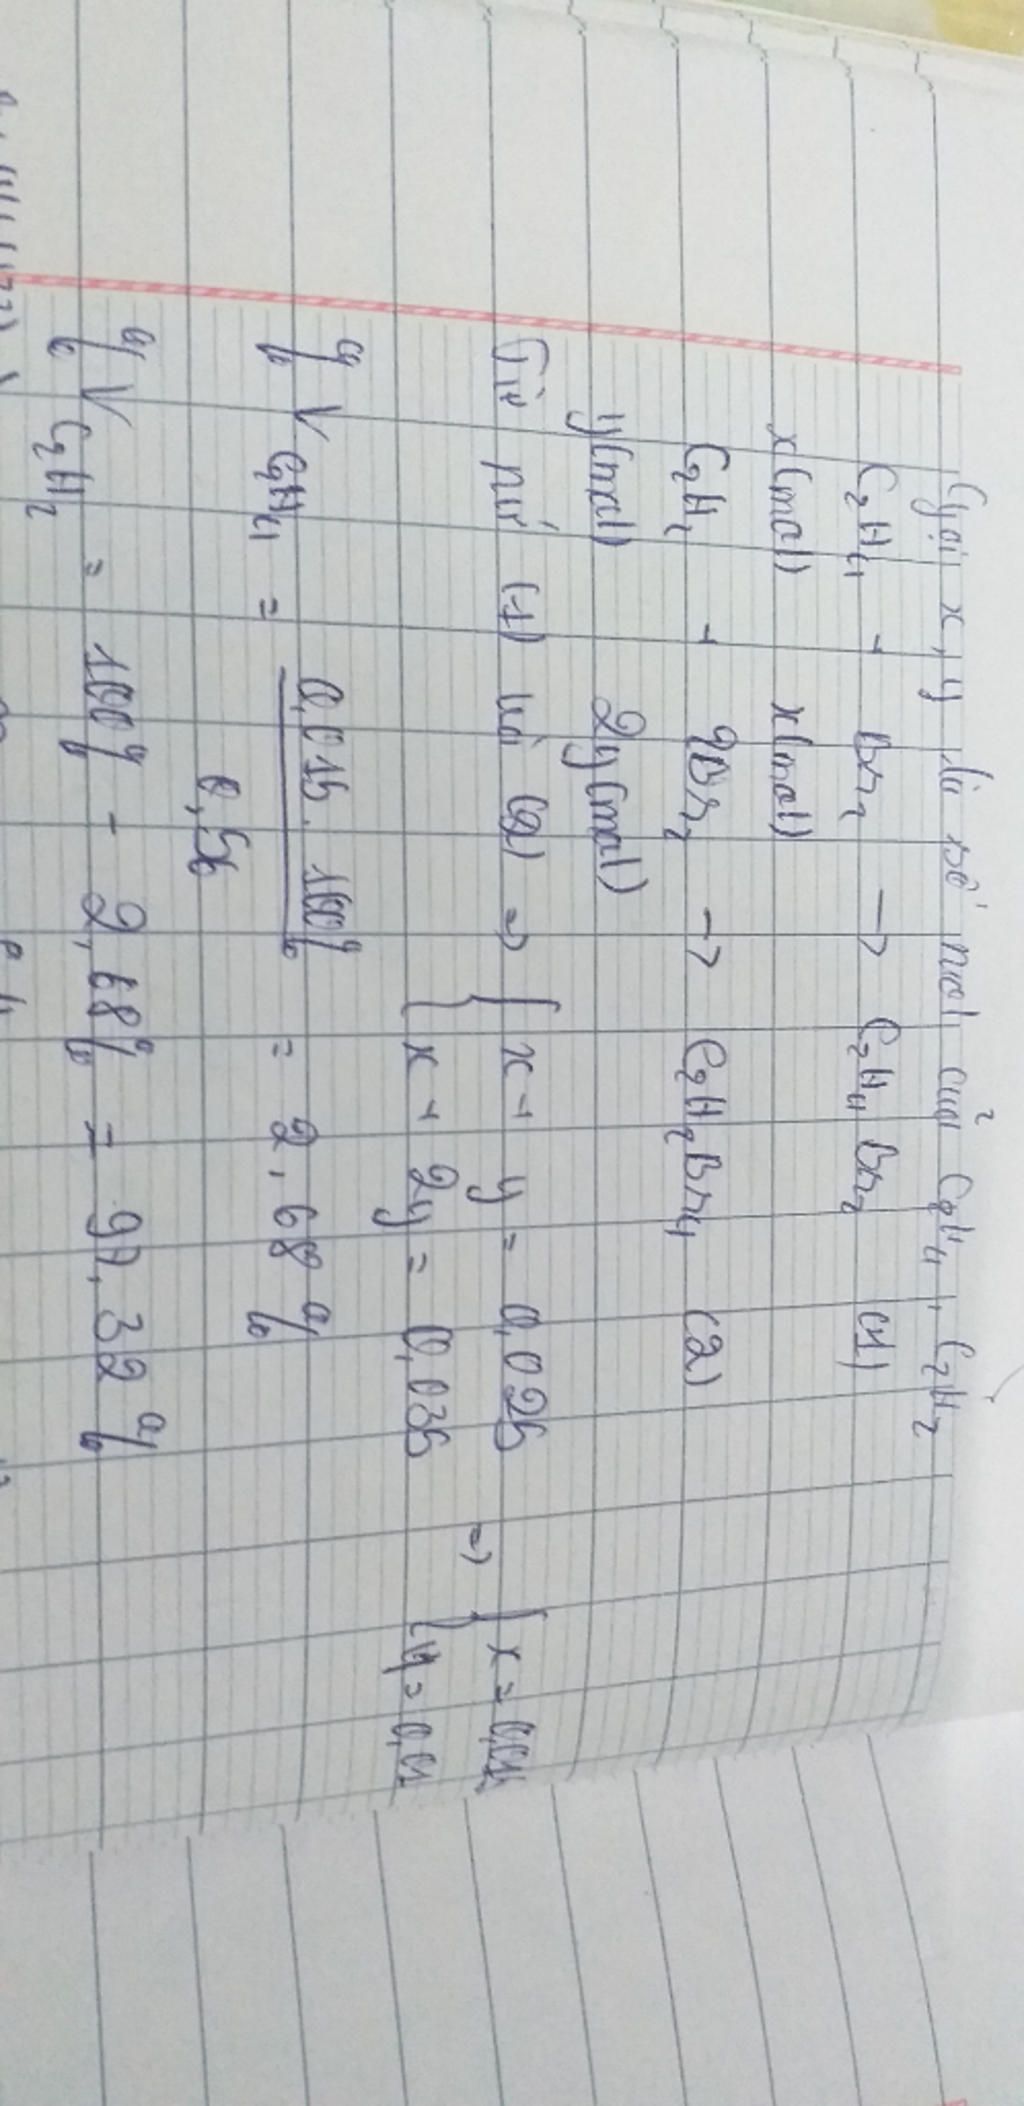 Gọi x, y là số mol của C2H4, C2H2
C2H4 + Br2 → C2H4Br2 (1)
x(mol) x(mol)
C2H2 + 2Br2 → C2H2Br4 (2)
y(mol) 2y(mol)
Từ pứ (1) và (2) => { x + y = 0,025 => { x = 0,015
{ x + 2y = 0,035 { y = 0,01
% V C2H4 = 0,015 . 100% / 0,56 = 2,68 %
% V C2H2 = 100% - 2,68% = 97,32 %